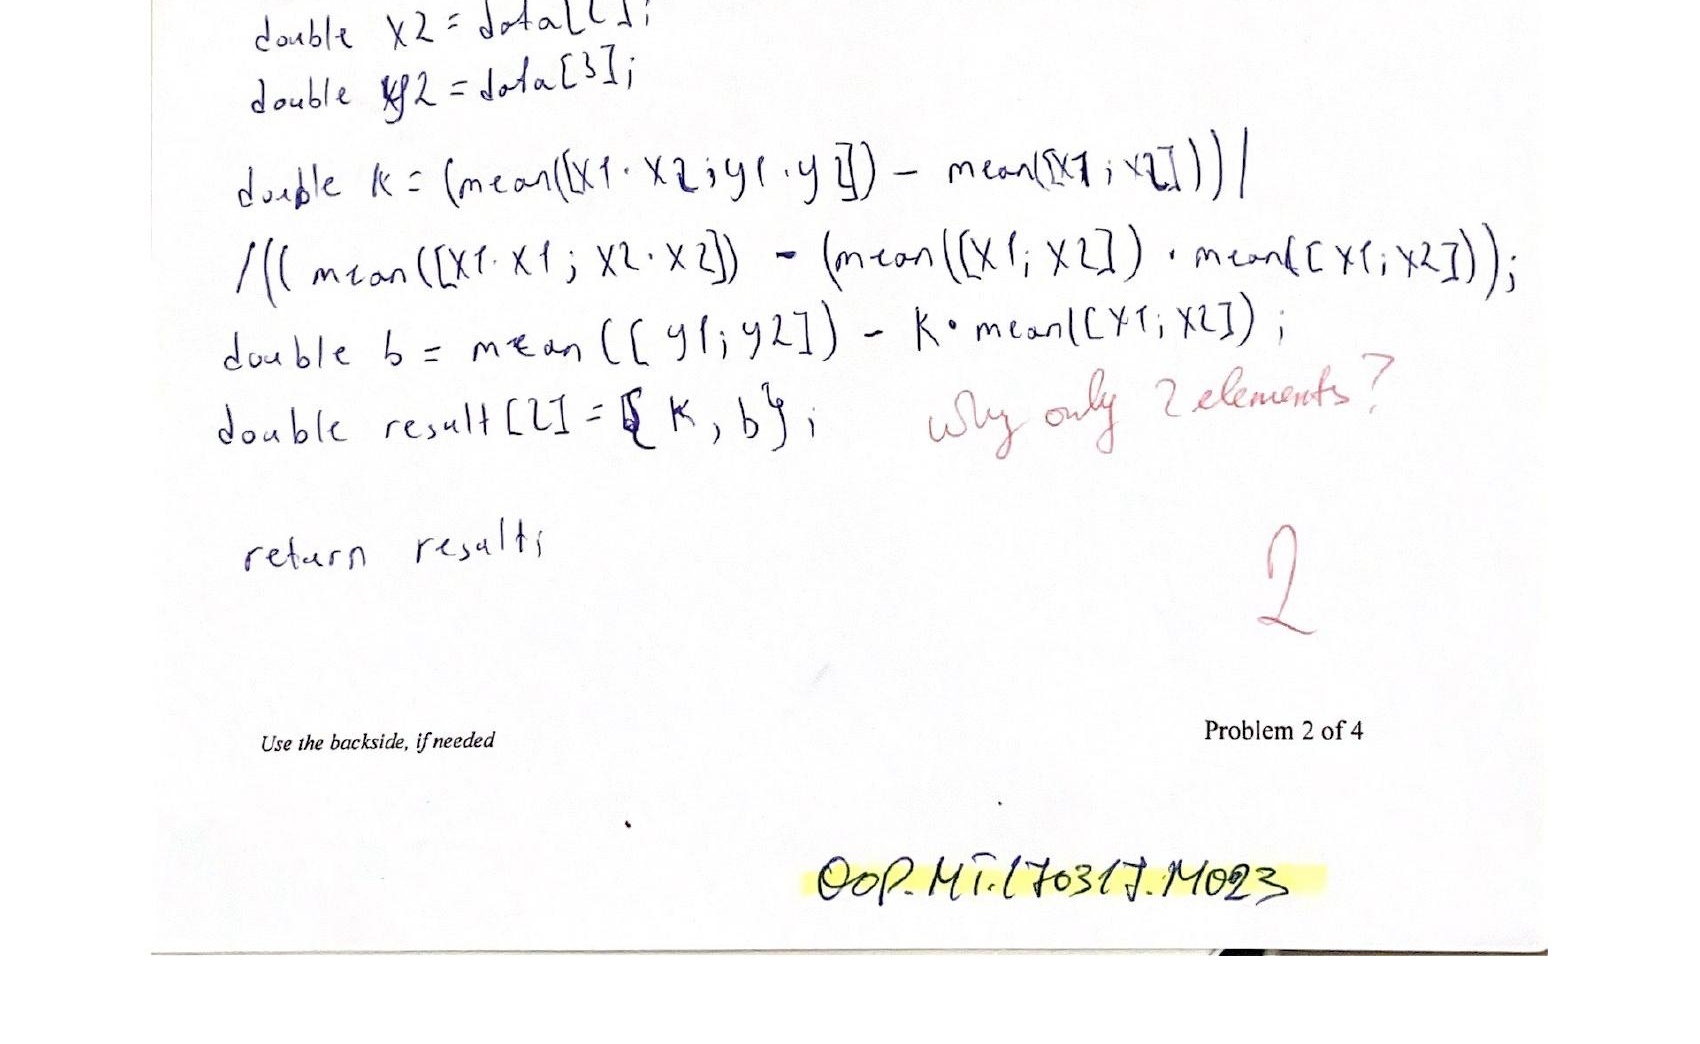 double x2 = data[ ];
double y2 = data[3];
double k = (mean([x1·x2;y1·y2]) - mean([x1;x2]))/
/((mean([x1·x1; x2·x2]) - (mean([x1; x2]) · mean([x1;x2]));
double b = mean([y1;y2]) - k· mean([x1;x2]);
double result[2] = {k, b};
why only 2 elements?
return result;
2
Use the backside, if needed
Problem 2 of 4
OOP.MT.170317.M023